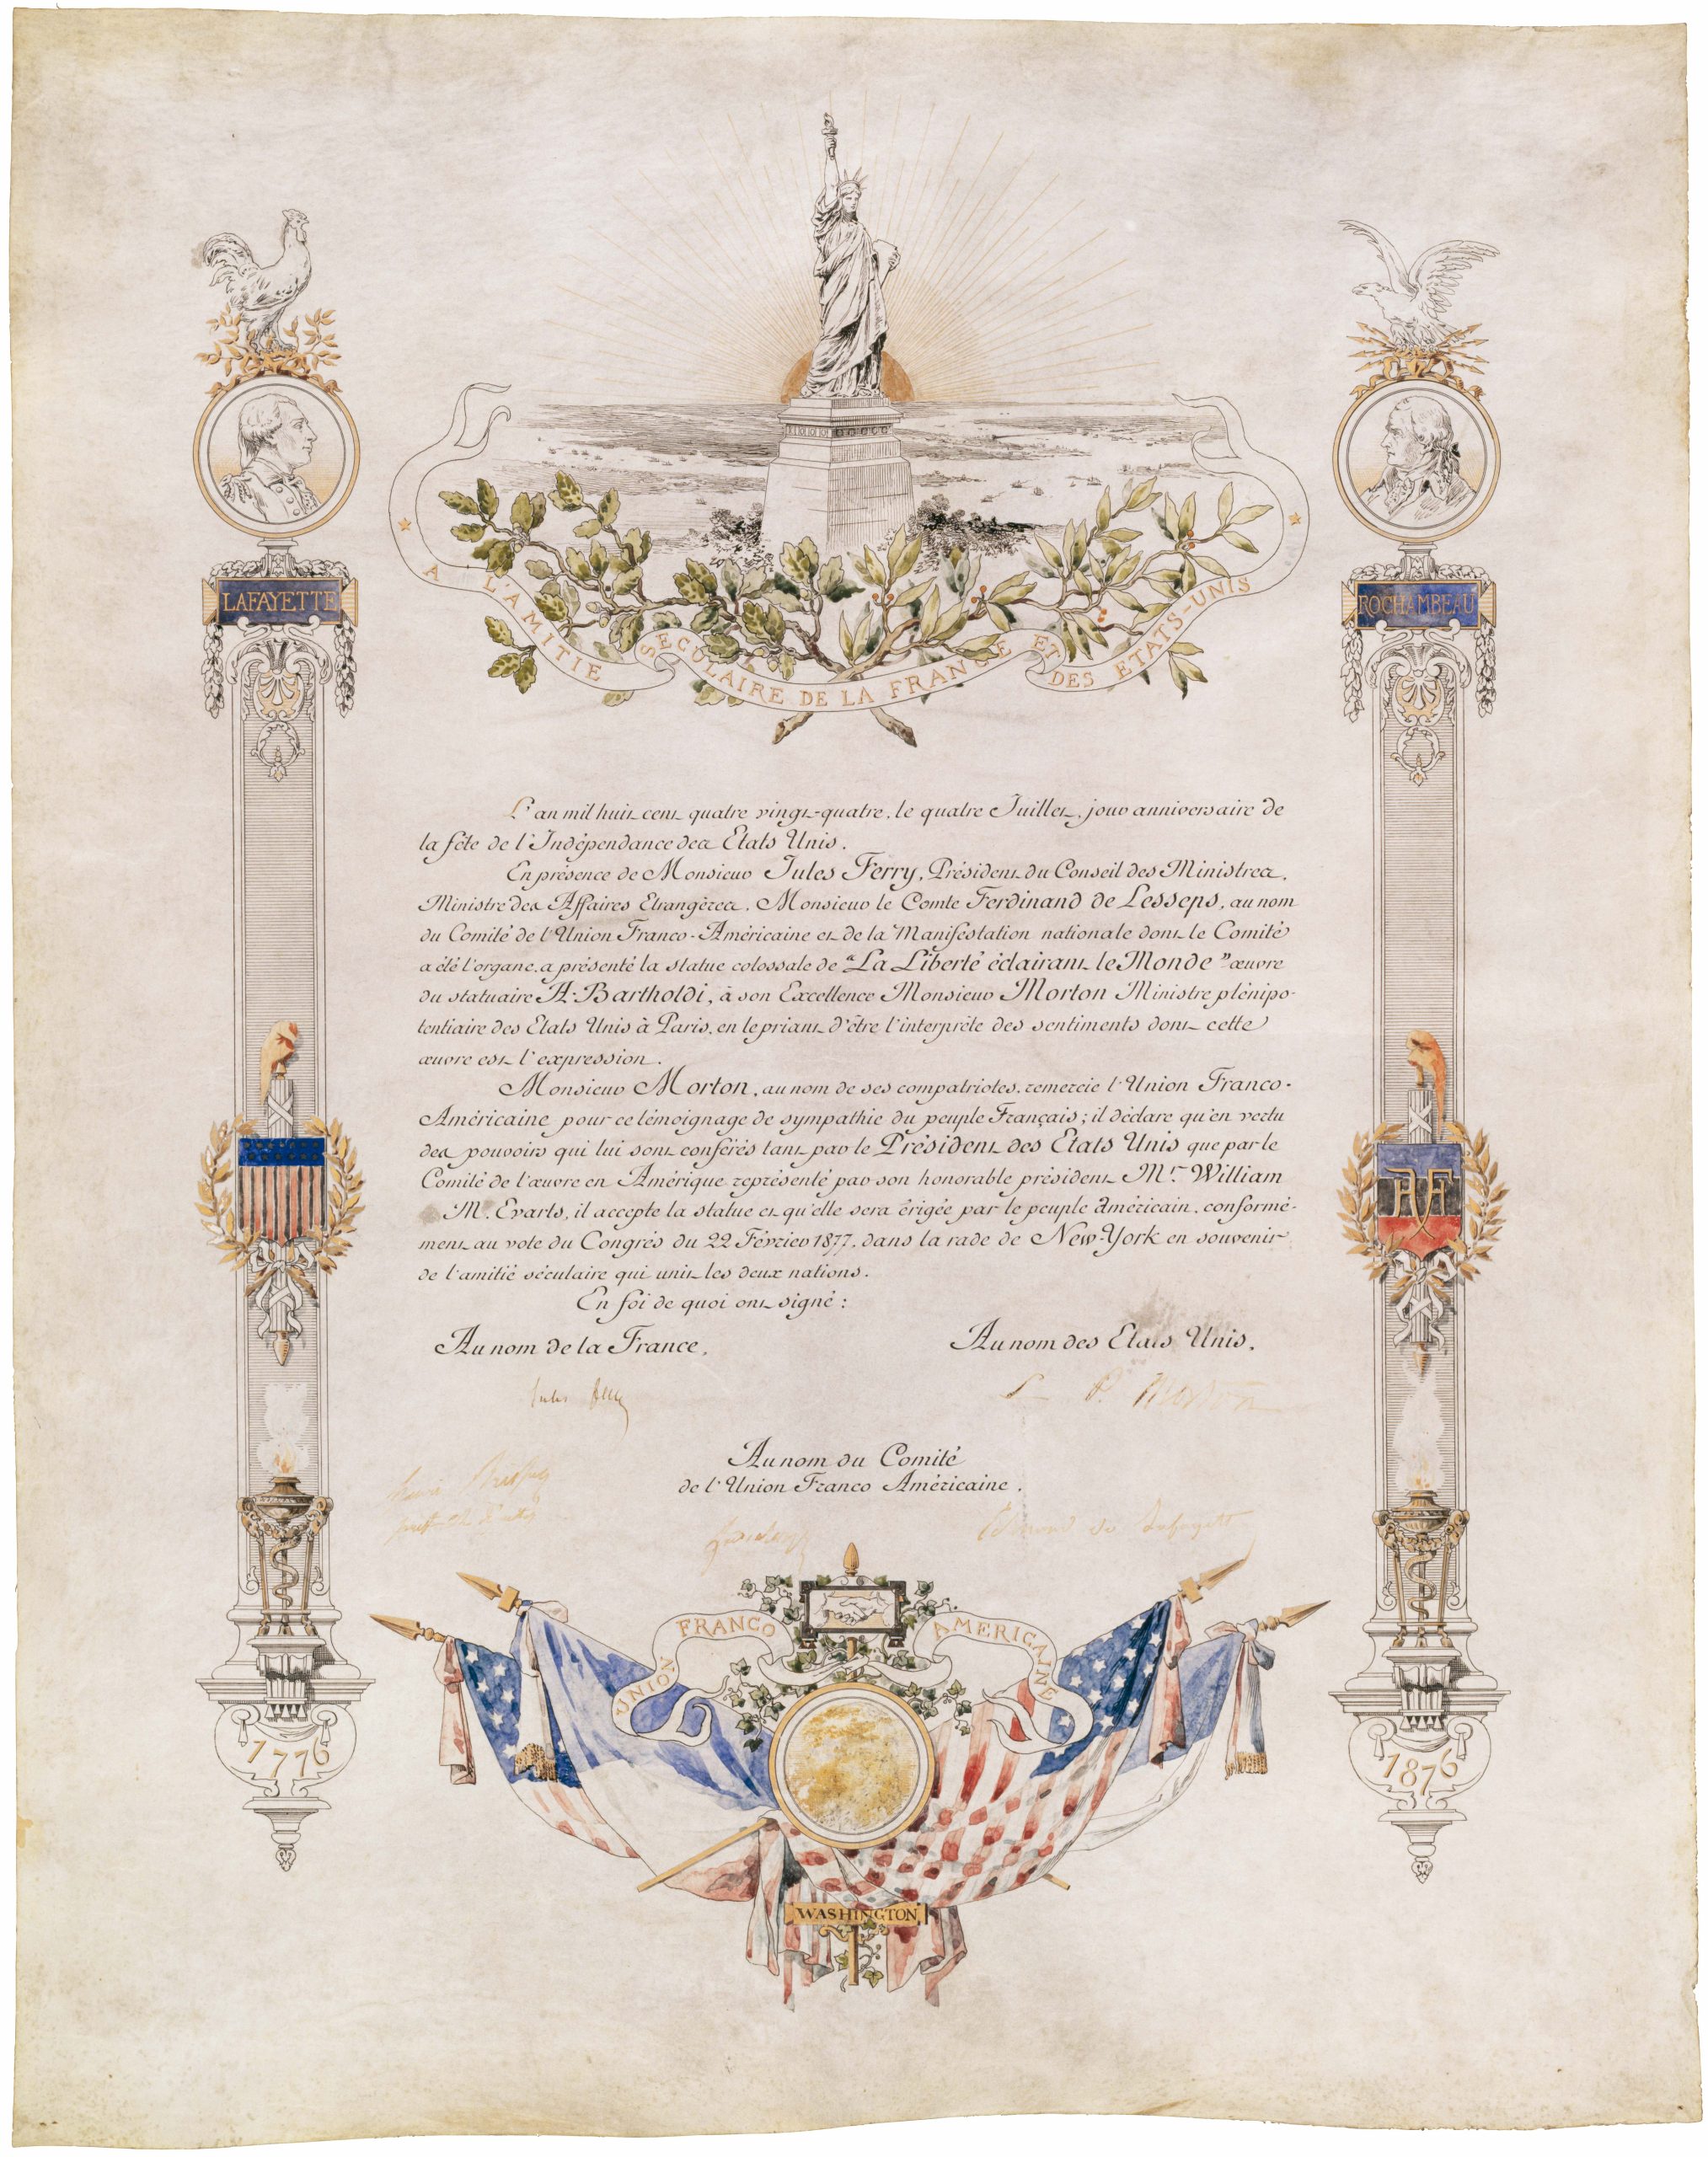 A L'AMITIE SECULAIRE DE LA FRANCE ET DES ETATS-UNIS
LAFAYETTE
ROCHAMBEAU
L'an mil huit cent quatre vingt-quatre, le quatre Juillet, jour anniversaire de
la fête de l'Indépendance des Etats Unis.
En présence de Monsieur Jules Ferry, Président du Conseil des Ministres,
Ministre des Affaires Etrangères, Monsieur le Comte Ferdinand de Lesseps, au nom
du Comité de l'Union Franco-Américaine et de la Manifestation nationale dont le Comité
a été l'organe, a présenté la statue colossale de "La Liberté éclairant le Monde" œuvre
du statuaire A. Bartholdi, à son Excellence Monsieur Morton Ministre plénipo-
tentiaire des Etats Unis à Paris, en le priant d'être l'interprète des sentiments dont cette
œuvre est l'expression.
Monsieur Morton, au nom de ses compatriotes, remercie l'Union Franco-
Américaine pour ce témoignage de sympathie du peuple Français; il déclare qu'en vertu
des pouvoirs qui lui sont conférés tant par le Président des Etats Unis que par le
Comité de l'œuvre en Amérique représenté par son honorable président Mr. William
M. Evarts, il accepte la statue et qu'elle sera érigée par le peuple américain, conformé-
ment au vote du Congrès du 22 Février 1877, dans la rade de New-York en souvenir
de l'amitié séculaire qui unit les deux nations.
En foi de quoi ont signé :
Au nom de la France,
Au nom des Etats Unis,
Jules Ferry
L. P. Morton
Au nom du Comité
de l'Union Franco Américaine.
Henri
Edmond de Lafayette
UNION FRANCO AMERICAINE
1776
1876
WASHINGTON